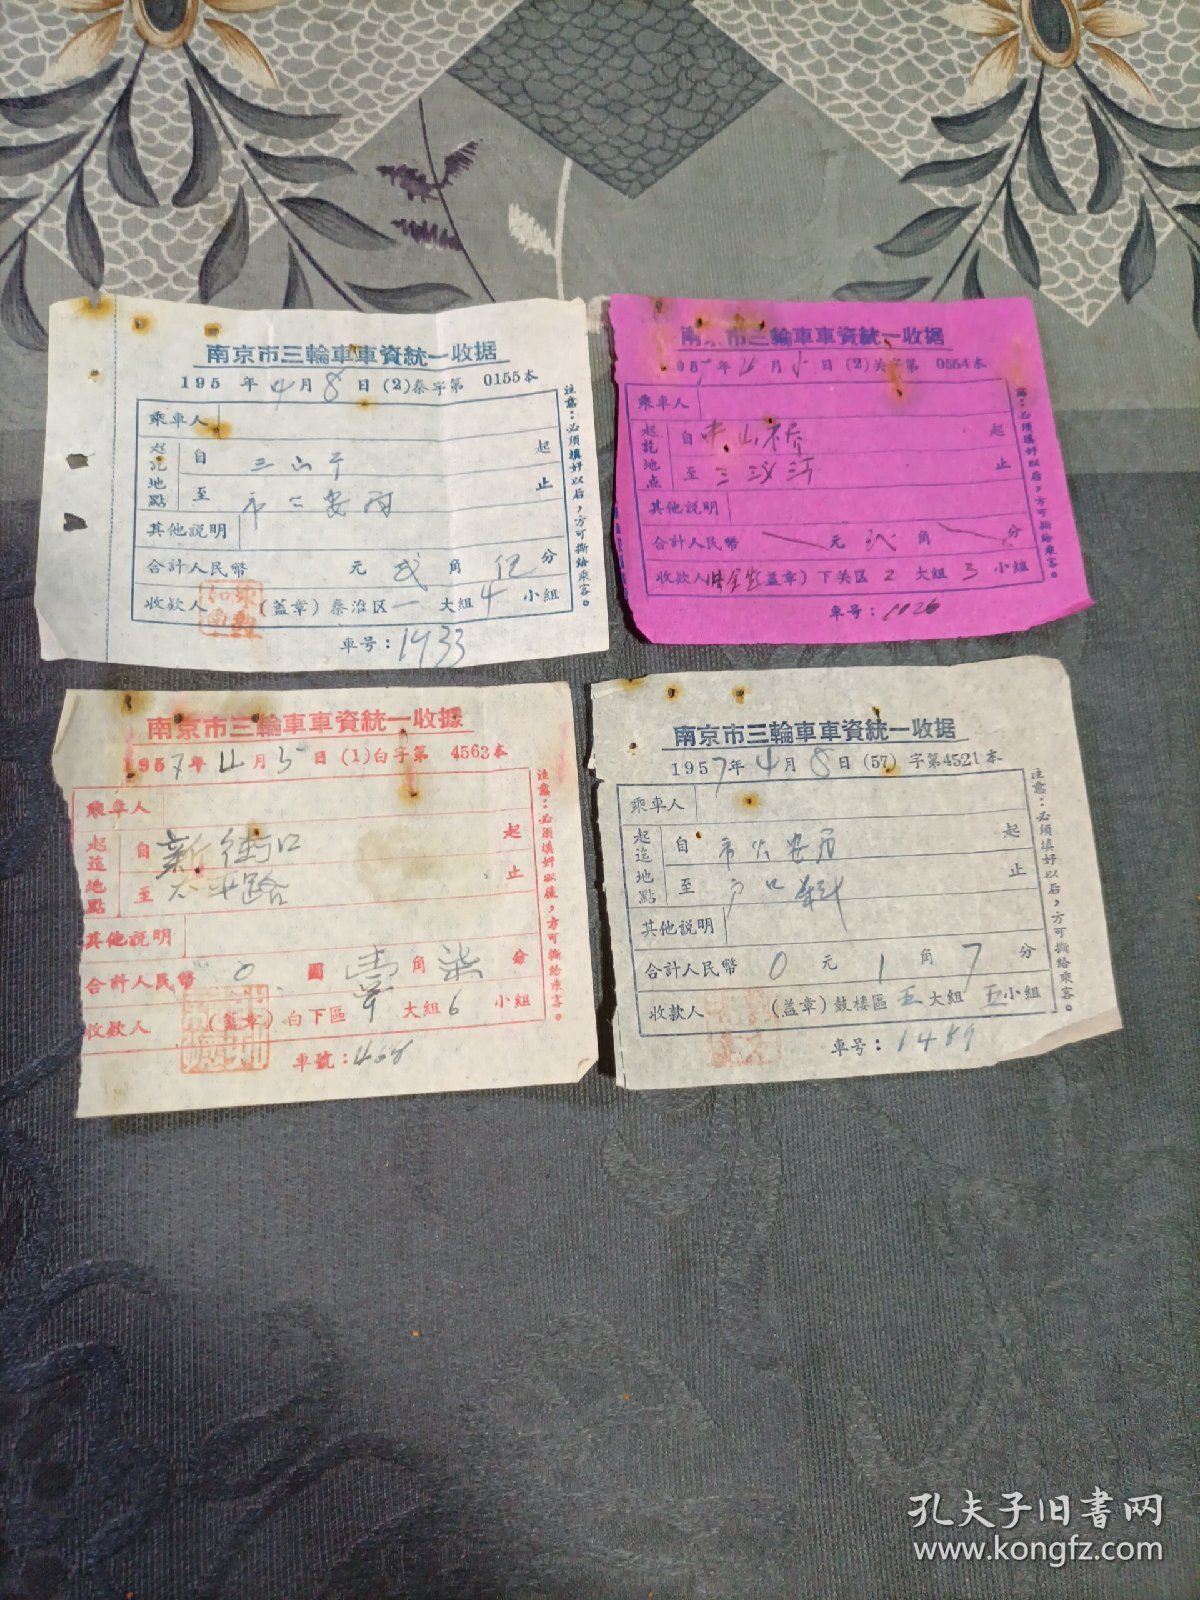 南京市三輪車車資統一收据
195 年 4 月 8 日 (2) 秦字第 0155本
乘車人
起訖地點 自 三山 起
至 市 止
其他説明
合計人民幣 元 弍 角 分
收欵人 (蓋章) 秦淮区 一 大組 4 小組
車号: 1433
注意:必須填好以后,方可撕給乘客。
南京市三輪車車資統一收据
195 年 4 月 5 日 (2) 关字第 0554本
乘車人
起訖地点 自 中山桥 起
至 三汊河 止
其他說明
合計人民幣 元 弍 角 分
收欵人 (蓋章) 下关区 2 大組 3 小組
車号: 1126
注意:必須填好以后,方可撕給乘客。
南京市三輪車車資統一收據
1957年 4 月 5 日 (1) 白字第 4563本
乘車人
起迄地點 自 新街口 起
至 太平路 止
其他說明
合計人民幣 0 圓 壹 角 柒 分
收欵人 (蓋章) 白下區 9 大組 6 小組
車號: 468
注意:必須填好以後,方可撕給乘客。
南京市三輪車車資統一收据
1957年 4 月 8 日 (57) 字第4521本
乘車人
起迄地點 自 市公安局 起
至 户口科 止
其他説明
合計人民幣 0 元 1 角 7 分
收欵人 (蓋章) 鼓楼區 五 大組 五 小組
車号: 1489
注意:必須填好以后,方可撕給乘客。
孔夫子旧書网
www.kongfz.com